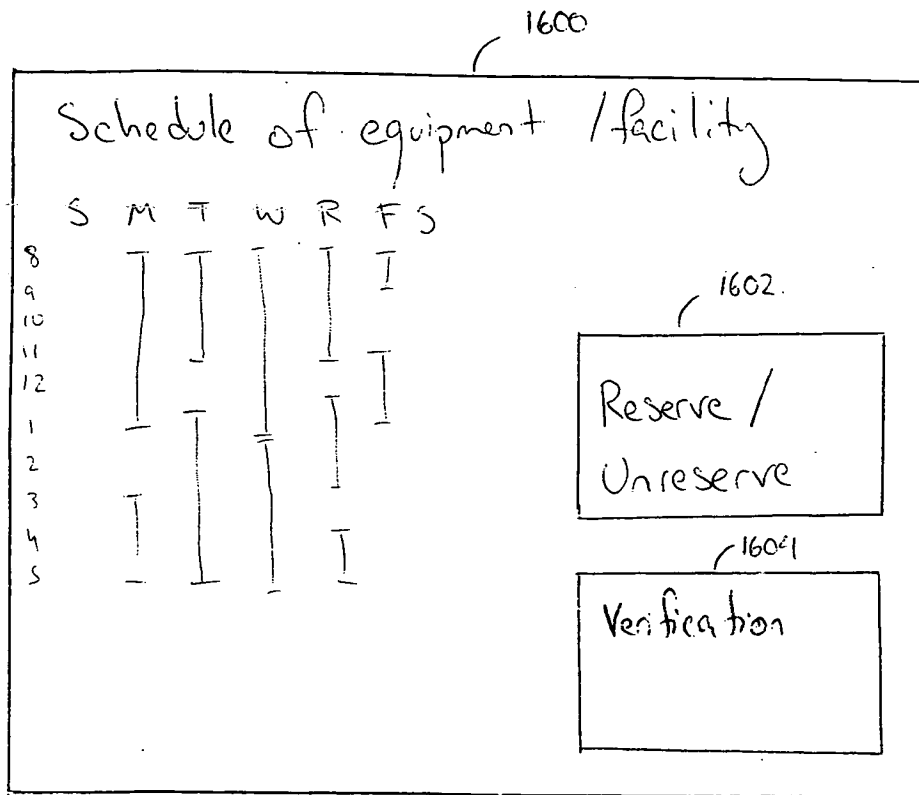 1600
Schedule of equipment / facility
S M T W R F S
8
9
10
11
12
1
2
3
4
5
1602
Reserve /
Unreserve
1604
Verification